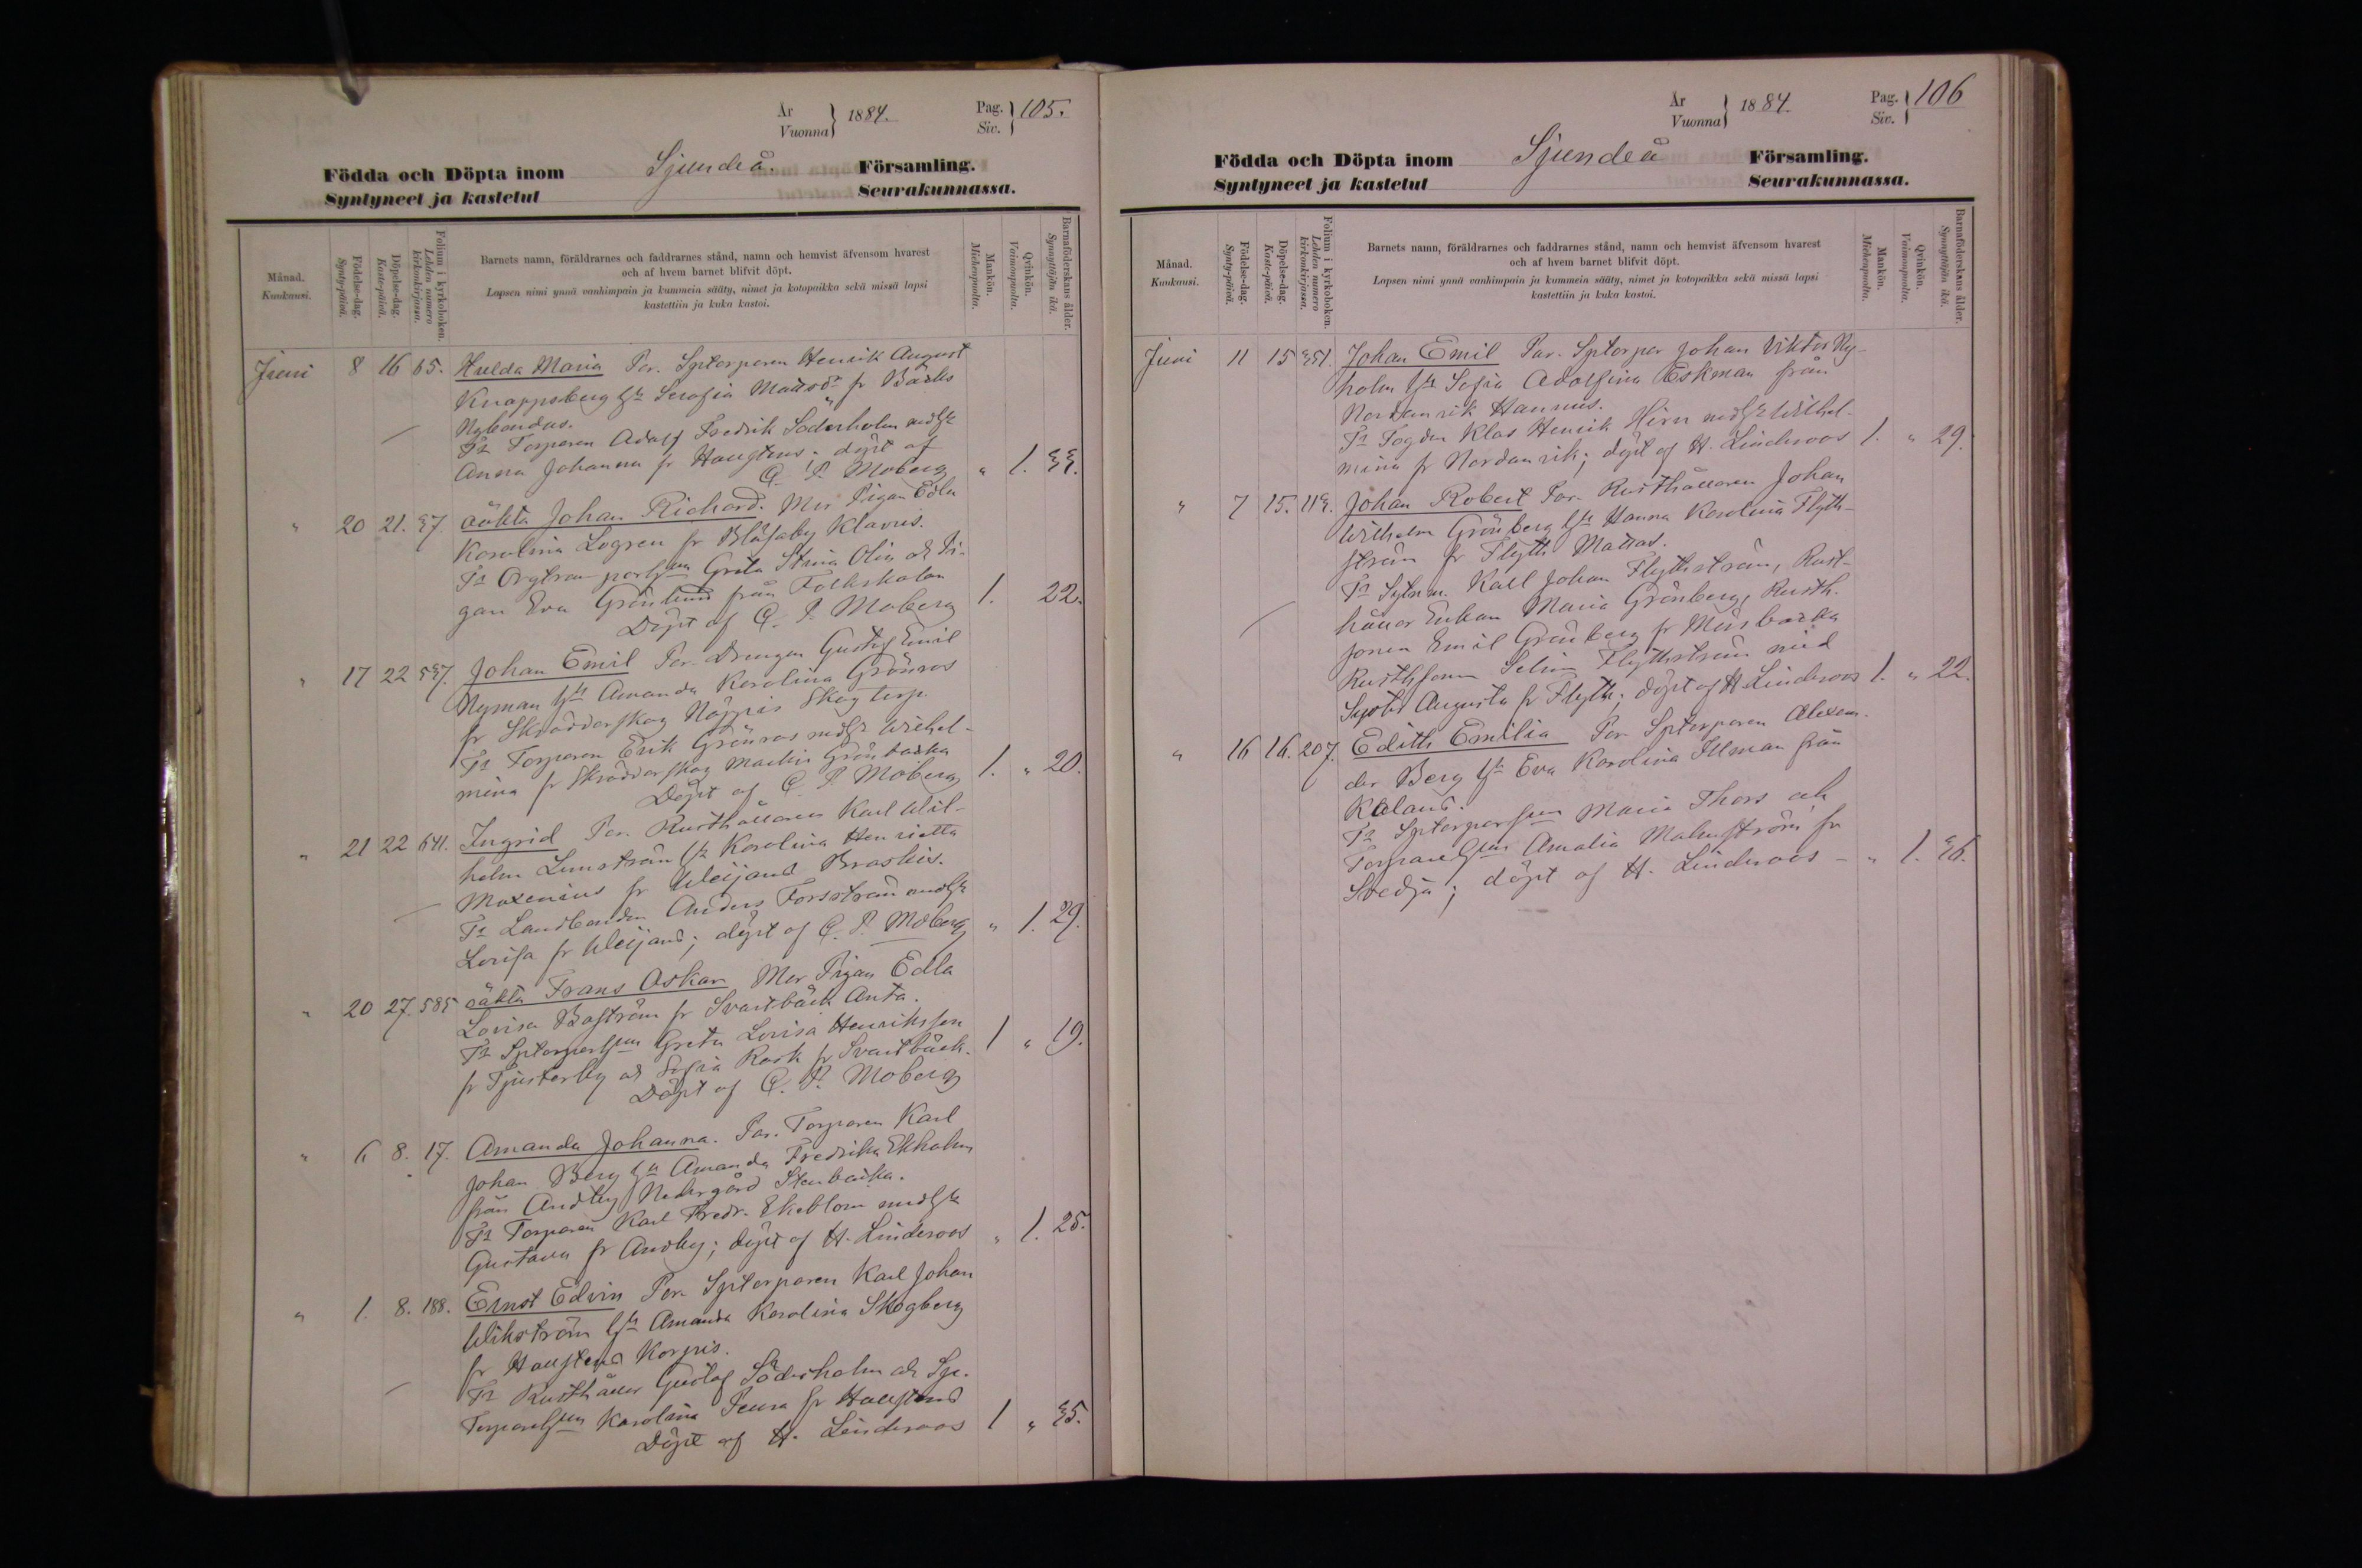 År
Vuonna } 1884.
Pag.
Siv. } 105.
Födda och Döpta inom Sjundeå. Församling.
Syntyneet ja kastetut Seurakunnassa.
Månad.
Kuukausi.
Födelse-dag.
Synty-päivä.
Döpelse-dag.
Kaste-päivä.
Folium i kyrkoboken.
Lehden numero
kirkonkirjassa.
Barnets namn, föräldrarnes och faddrarnes stånd, namn och hemvist äfvensom hvarest
och af hvem barnet blifvit döpt.
Lapsen nimi ynnä vanhimpain ja kummein sääty, nimet ja kotopaikka sekä missä lapsi
kastettiin ja kuka kastoi.
Mankön.
Miehenpuolta.
Qvinkön.
Vaimonpuolta.
Barnaföderskans ålder.
Synnyttäjän ikä.
Juni 8 16 65. Hulda Maria Par. Sptorparen Henrik August
Knappsberg Hu Serafia Mattsdr fr Bäcks
Nybondas.
Fr Torparen Adolf Fredrik Söderholm
Anna Johanna fr ; döpt af
C. P. Moberg " 1. 33.
" 20 21. 37. oäkta Johan Richard. Mor Pigan Edla
Karolina Logren fr Blåsaby Klavus.
Fr Greta Stina Olin och Pi-
gan Eva Grönlund från Folkskolan
Döpt af C. P. Moberg 1. 22.
" 17 22 537. Johan Emil Par. Drengen Gustaf Emil
Nyman Hu Amanda Karolina Grönros
fr Skräddarskog Nöjjis Skogstorp.
Fr Torparen Erik Grönros Wilhel-
mina fr Skräddarskog
Döpt af C. P. Moberg 1. " 20.
" 21 22 641. Ingrid Par. Rusthållaren Karl Wil-
helm Lunström Hu Karolina Henrietta
Moxenius fr Weijans Braskis.
Fr Landbonden Anders Forsström
Lovisa fr Weijans; döpt af C. P. Moberg " 1. 29.
" 20 27. 585 oäkta Frans Oskar Mor Pigan Edla
Lovisa Boström fr Svartbäck Anta.
Fr Greta Lovisa Henriksson
fr Tjusterby och Sofia Rask fr Svartbäck. 1 " 19.
Döpt af C. P. Moberg
" 6 8. 17. Amanda Johanna. Par. Torparen Karl
Johan Berg Hu Amanda Fredrika Ekholm
från Andby Nedergård Stenbacka.
Fr Torparen Karl Fredr. Ekeblom
Gustava fr Andby; döpt af H. Linderoos " 1. 25.
" 1. 8. 188. Ernst Edvin Par. Sptorparen Karl Johan
Wikström Hu Amanda Karolina Skogberg
fr Korpis.
Fr Rusthållar Gustaf Söderholm och Sp.
Karolina fr
Döpt af H. Linderoos 1 " 35.
År
Vuonna } 1884.
Pag.
Siv. } 106
Födda och Döpta inom Sjundeå Församling.
Syntyneet ja kastetut Seurakunnassa.
Månad.
Kuukausi.
Födelse-dag.
Synty-päivä.
Döpelse-dag.
Kaste-päivä.
Folium i kyrkoboken.
Lehden numero
kirkonkirjassa.
Barnets namn, föräldrarnes och faddrarnes stånd, namn och hemvist äfvensom hvarest
och af hvem barnet blifvit döpt.
Lapsen nimi ynnä vanhimpain ja kummein sääty, nimet ja kotopaikka sekä missä lapsi
kastettiin ja kuka kastoi.
Mankön.
Miehenpuolta.
Qvinkön.
Vaimonpuolta.
Barnaföderskans ålder.
Synnyttäjän ikä.
Juni 11 15 351. Johan Emil Par. Sptorpar Johan Viktor Ny-
holm Hu Sofia Adolfina Eskman från
Nordanvik Hannus.
Fr Fogden Klas Henrik Hirn Wilhel-
mina fr Nordanvik; döpt af H. Linderoos 1. " 29.
" 7 15. 113. Johan Robert Par. Rusthållaren Johan
Wilhelm Grönberg Hu Hanna Karolina Flyth-
ström fr Flyth Mattas.
Fr Karl Johan Flythström, Rust-
hållar Enkan Maria Grönberg, Rusth.
sonen Emil Grönberg fr
Rusthsonen Selim Flythström med
Syster Augusta fr Flyth; döpt af H. Linderoos 1. " 22.
" 16 16. 207. Edith Emilia Par. Sptorparen Alexan-
der Berg Hu Eva Karolina Illman från
Kaland.
Fr Maria Thors och
Amalia Malmström fr
Svedja; döpt af H. Linderoos - " 1. 36.